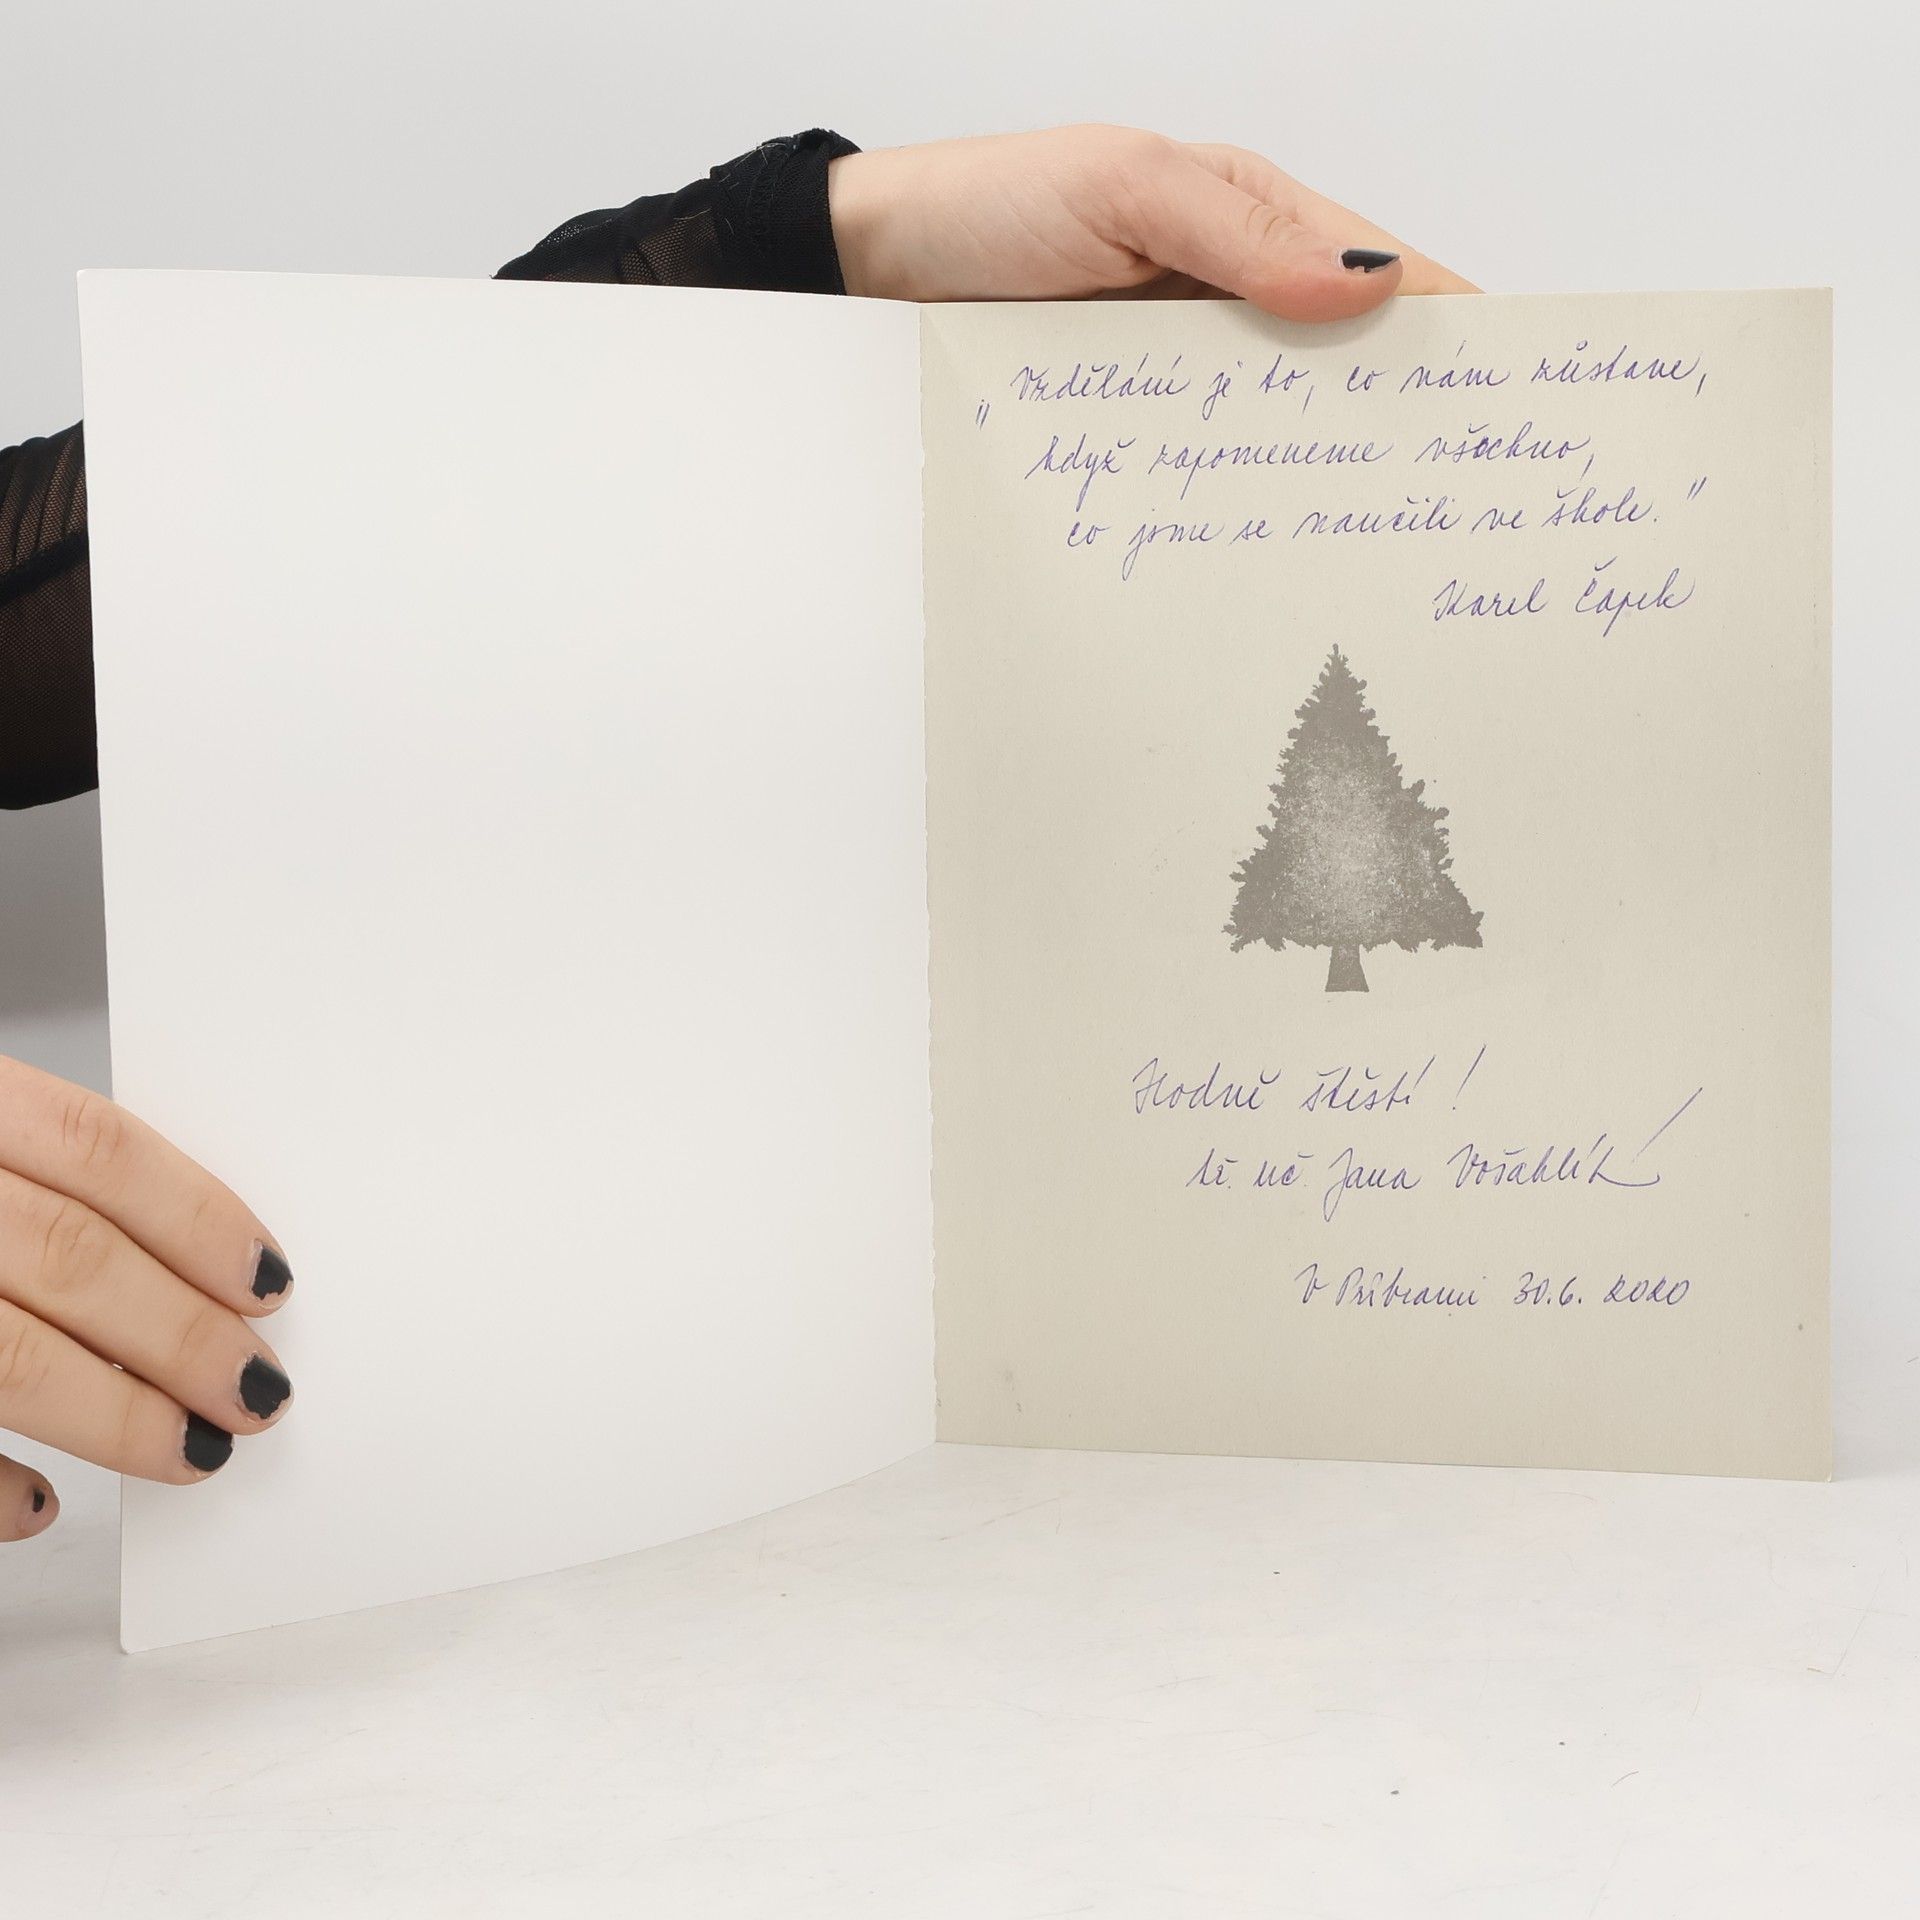 „Vzdělání je to, co nám zůstane,
když zapomeneme všechno,
co jsme se naučili ve škole."
Karel Čapek
Hodně štěstí!
tř. uč. Jana
V Příbrami 30.6. 2020